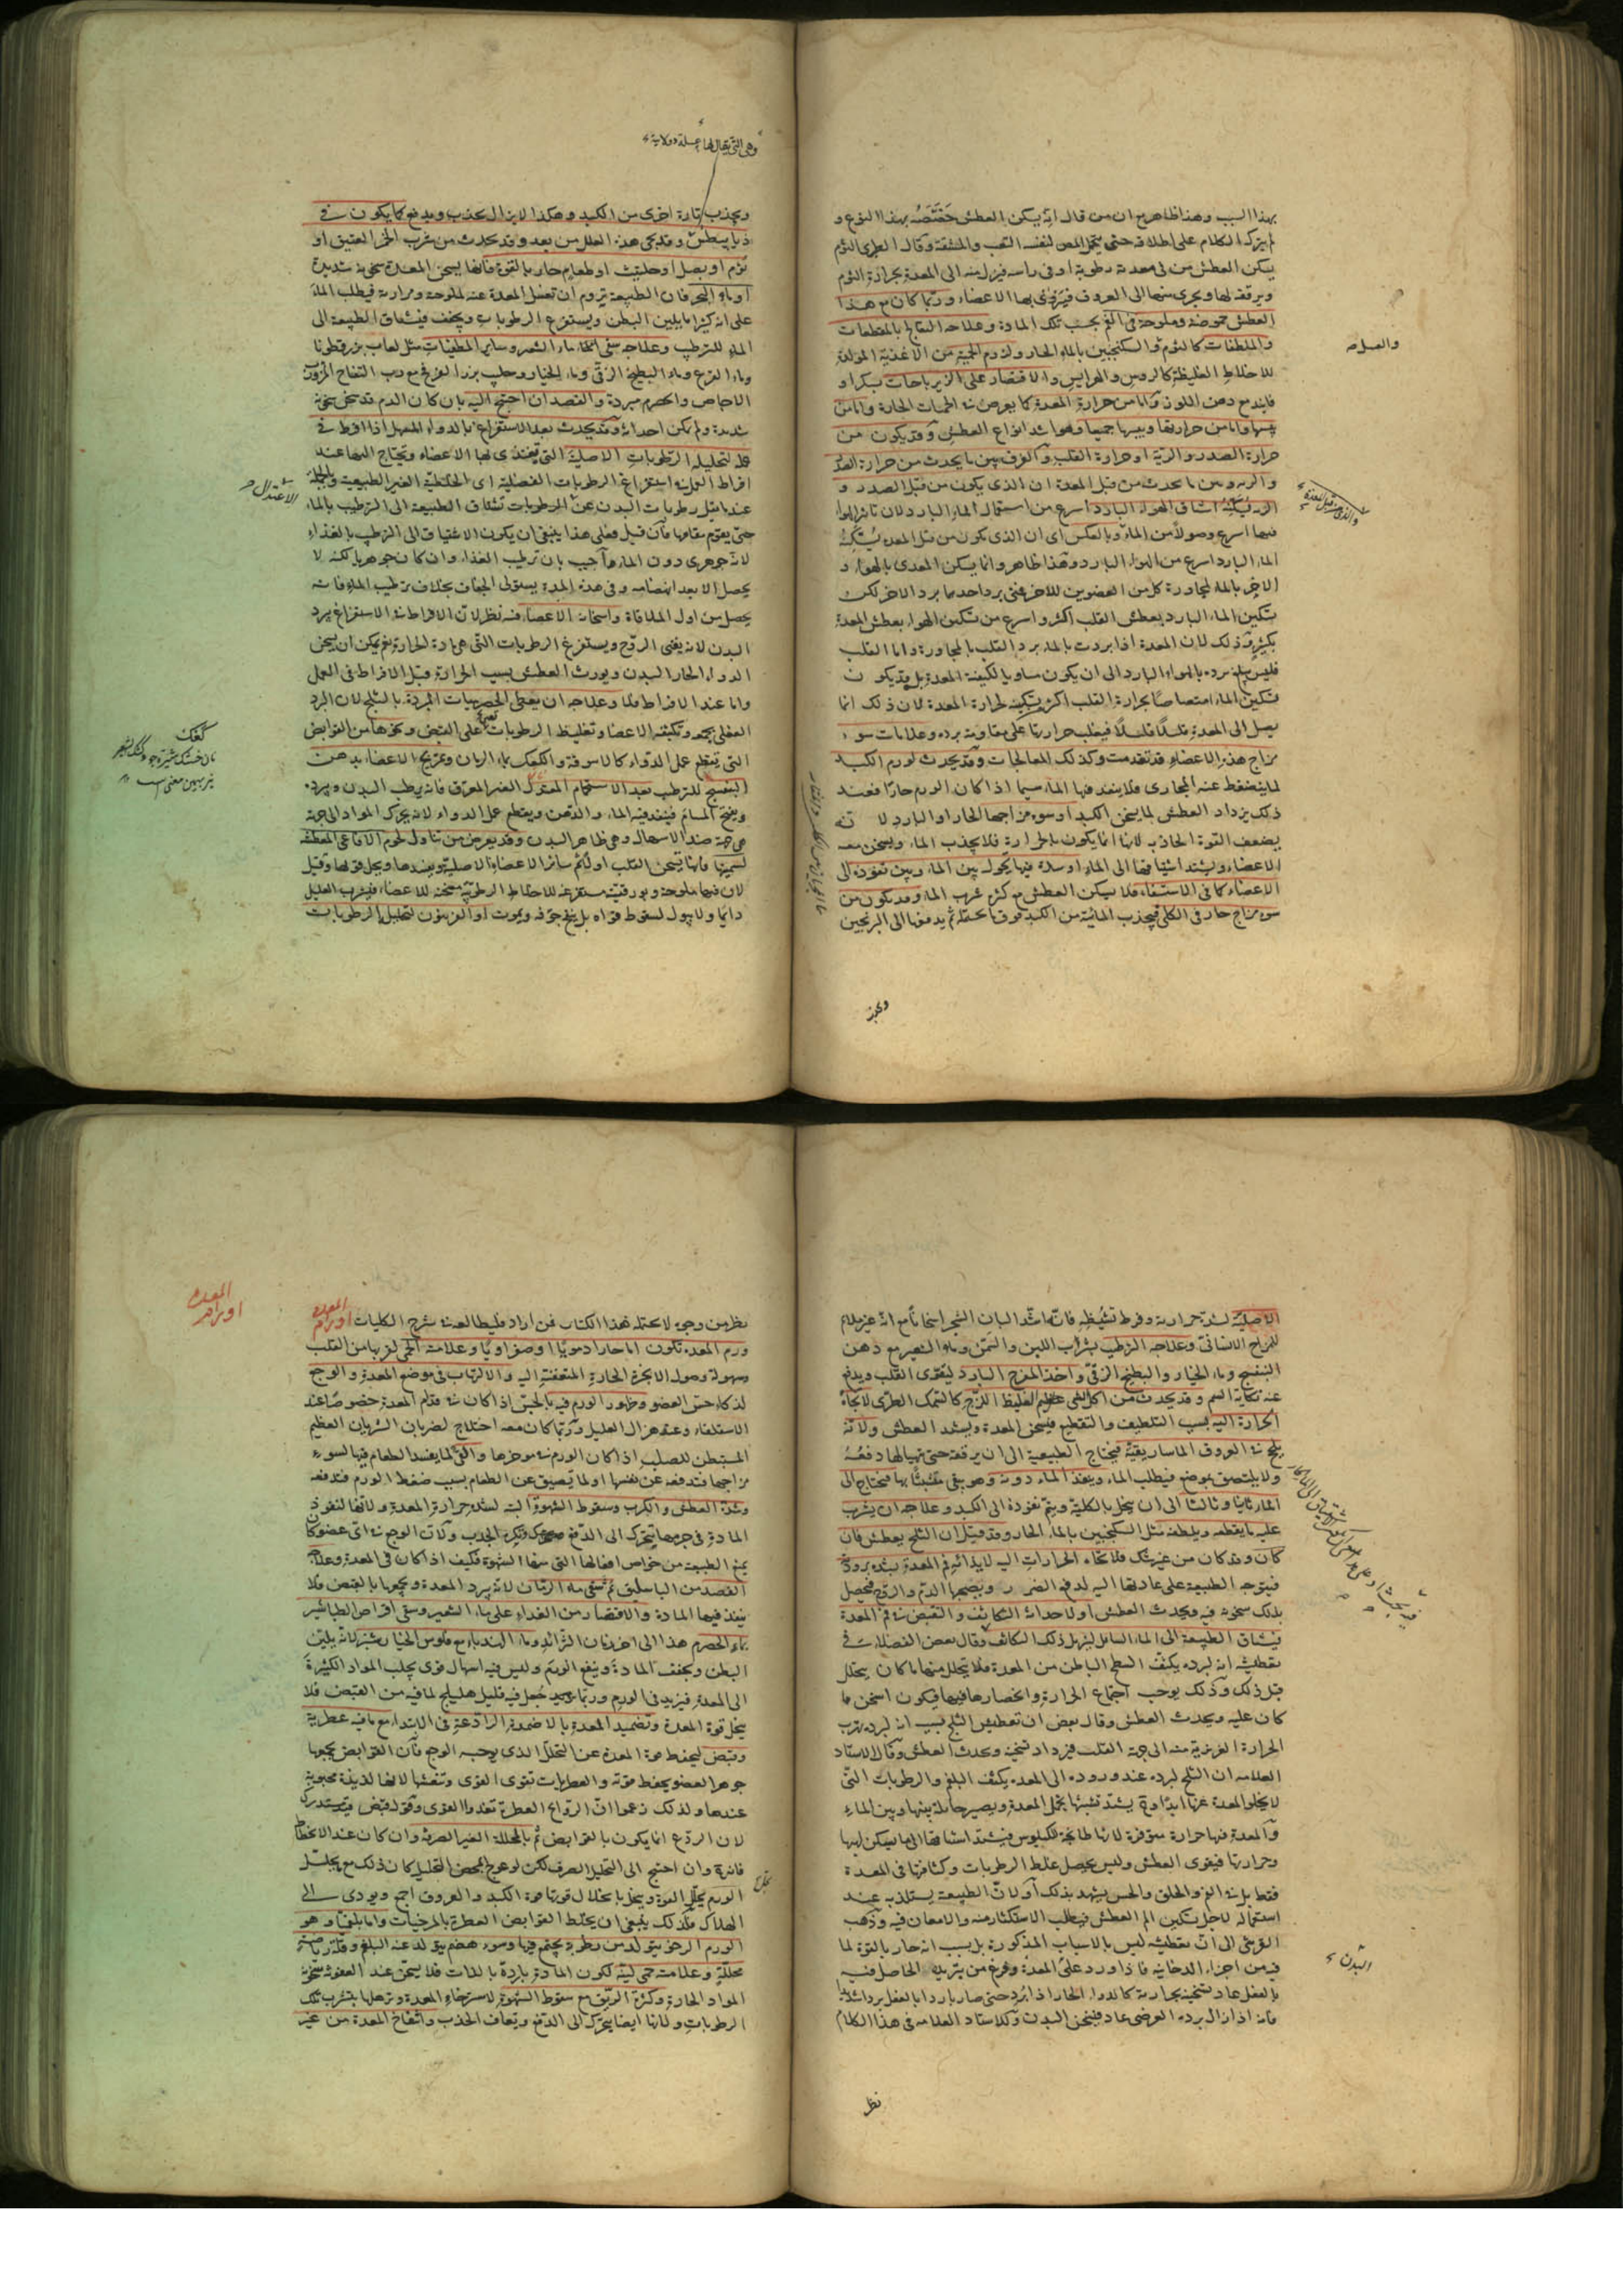 بهذا السبب وهذا ظاهر مع ان من قال انه يسكن العطش خصصه بهذا النوع و
لم يترك الكلام على اطلاقه حتى يتحمل لنفسه التعب والمشقة وقال الطبرى الثوم
يسكن العطش من فى معدته رطوبة او فى راسه فينزل منه الى المعدة بحرارة الثوم
ويرققه لها ويجرى منها الى العروق فيتروى بها الاعضاء وربما كان مع هذا
العطش حموضة وملوحة فى الفم بحسب تلك المادة وعلاجه النفاع بالمقطعات
والملطفات كالثوم والسكنجبين بالماء الحار ولزوم الحمية من الاغذية المولدة
للاخلاط الغليظة كالروس والهرايس والاقتصار على الزيرباجات بسكر او
فانيذ مع دهن اللوز واما من حرارة المعدة كما يعرض فى الحميات الحارة واما من
يبسها واما من حرارتها ويبسها جميعا وهو اشد انواع العطش وقد يكون من
حرارة الصدر والرية او حرارة القلب والفرق بين ما يحدث من حرارة الصدر
والرية وبين ما يحدث من قبل المعدة ان الذى يكون من قبل الصدر و
الرية يسكنه استنشاق الهواء البارد اسرع من استعمال الماء البارد لان تاثير الهواء
فيهما اسرع وصولا من الماء وبالعكس اى ان الذى يكون من قبل المعدة يسكنه
الماء البارد اسرع من الهواء البارد وهذا ظاهر وانما يسكن المعدى بالهواء و
الاخر بالماء لمجاورة كل من العضوين للاخر فمتى برد احدهما برد الاخر لكن
تسكين الماء البارد بعطش القلب اكثر واسرع من تسكين الهواء بعطش المعدة
بكثير وذلك لان المعدة اذا بردت بالماء برد القلب بالمجاورة واما القلب
فليس يبلغ برده بالهواء البارد الى ان يكون مساويا لكيفية المعدة بل قد يكون
تسكين الماء امتصاصا بحرارة القلب اكثر من تسكينه لحرارة المعدة لان ذلك انما
يصل الى المعدة قليلا قليلا فيغلب حرارتها على مقاومة برده وعلامات سوء
مزاج هذه الاعضاء قد تقدمت وكذلك المعالجات وقد يحدث لورم الكبد
لما ينضغط عنه المجارى فلا ينفذ فيها الماء سيما اذا كان الورم حارا فعند
ذلك يزداد العطش لما يسخن الكبد او سوء مزاجها الحار او البارد لانه
يضعف القوة الجاذبة لانها انما يكون بالحرارة فلا يجذب الماء ويسخن معه
الاعضاء ويشتد اشتياقها الى الماء او سدة فيها يحول بين الماء وبين نفوذه الى
الاعضاء كما فى الاستسقاء فلا يسكن العطش مع كثرة شرب الماء وقد يكون من
سوء مزاج حار فى الكلى فيجذب المائية من الكبد فوق ما تحمله ثم يدفعها الى البربخين
ويجذب
والعسل صح
والذى من قبل المعدة
وهى التى يقال لها علة دولابية
ويجذب تارة اخرى من الكبد وهكذا لا يزال يجذب ويدفع كما يكون فى
ذيابيطس وقد يجئ هذه العلل من بعد وقد يحدث من شرب الخمر العتيق او
ثوم او بصل او حلتيت او طعام حار بالقوة فانها يسخن المعدة سخونة شديدة
او ماء البحر فان الطبيعة تروم ان تغسل المعدة عنه لملوحته ومرارته فيطلب الماء
على انه كثيرا ما يلين البطن ويستفرغ الرطوبات ويجفف فيشتاق الطبيعة الى
الماء للترطيب وعلاجه سقى ماء الشعير وساير المطفيات مثل لعاب بزرقطونا
وماء القرع وماء البطيخ الزقى وماء الخيار وحليب بزر القرع مع رب التفاح المز ورب
الاجاص والحصرم مبردة والفصد ان احتيج اليه بان كان الدم قد سخن سخونة
شديدة ولم يكن احداثه وقد يحدث بعد الاستفراغ بالدواء المسهل اذا افرط فى
عمله لتحليله الرطوبات الاصلية التى تغتذى بها الاعضاء وتحتاج اليها عند
افراط العمل فى استفراغ الرطوبات الفضلية اى الخلطية الغير الطبيعية وبالجملة
عند ما يقل رطوبات البدن عن الرطوبات تشتاق الطبيعة الى الترطيب بالماء
حتى يقوم مقامها فان قيل فعلى هذا ينبغى ان يكون الاشتياق الى الترطيب بالغذاء
لانه جوهرى دون الماء واجيب بان ترطيب الغذاء وان كان جوهريا لكنه لا
يحصل الا بعد انهضامه وفى هذه المدة يستولى الجفاف بخلاف ترطيب الماء فانه
يحصل من اول الملاقاة واسخانه الاعضاء فيه نظر لان الافراط فى الاستفراغ يبرد
البدن لانه يفنى الروح ويستفرغ الرطوبات التى هى مادة الحرارة نعم يمكن ان يسخن
الدواء الحار البدن ويورث العطش بسبب الحرارة قبل الافراط فى العمل
واما عند الافراط فلا وعلاجه ان يعطى الحصرميات المبردة بالثلج لان البرد
الفعلى يجمع وتكثيفه الاعضاء وتغليظ الرطوبات يعين على القبض ونحوها من القوابض
التى ينقطع عمل الدواء كالاسوقة والكعك بماء الرمان وتمريخ الاعضاء بدهن
البنفسج للترطيب بعد الاستحمام المعتدل الغير المعرق فانه يرطب البدن ويبرده
ويفتح المسام فينفذ فيه الماء والدهن ويقطع عمل الدواء لانه يحرك المواد الى جهة
هى جهة ضد الاسهال وهى ظاهر البدن وقد يعرض من تناول لحوم الافاعى المعطشة
لسميتها فانها يسخن القلب اولا ثم سائر الاعضاء الاصلية ويفسدها ويحل قواها وقيل
لان فيها ملوحة وبورقية مستفرغة للاخلاط الرطوبية مسخنة للاعضاء فيشرب العليل
دائما ولا يبول لسقوط قواه بل ينتفخ جوفه ويموت او الفربيون لتحليل الرطوبات
الاعتدال صح
كعك
نان خشک
بدین معنى است
الاصلية لشدة حرارته وفرط تنشيفه فانه اشد البان الشجر اسخانا مع انه غير ملائم
للمزاج الانسانى وعلاجه الترطيب بشراب اللبن والسمن وماء الشعير مع دهن
البنفسج وماء الخيار والبطيخ الزقى واخذ المفرح البارد ليقوى القلب ويدفع
عنه نكاية السم وقد يحدث من اكل شئ الغليظ اللزج كالسمك الطرى لاتجاه
الحرارة اليه بسبب التلطيف والتقطيع فيسخن المعدة ويشتد العطش ولانه
يلحج فى العروق الماساريقية فيحتاج الطبيعة الى ان يرققه حتى يتهيا لها دفعه
ولا يلتصق بموضع فيطلب الماء وينفذ الماء دونه وهو يبقى متشبثا بها فيحتاج الى
الماء ثانيا وثالثا الى ان ينحل بالكلية ويتم نفوذه الى الكبد وعلاجه ان يشرب
عليه ما يقطعه ويلطفه مثل السكنجبين بالماء الحار وقد قيل ان الثلج يعطش فان
كان وقد كان من غير شك فلانتحاء الحرارات اليه لايذائه فم المعدة بشدة برودته
فيتوجه الطبيعة على عادتها اليه لدفع الضرر ويصحبها الدم والروح فيحصل
بذلك سخونة فيه ويحدث العطش او لاحداثه التكاثف والقبض فى فم المعدة
فيشتاق الطبيعة الى الماء السائل ليزيل ذلك التكاثف وقال بعض الفضلاء فى
تعطيشه انه لبرده يكثف السطح الباطن من المعدة فلا يتحلل منها ما كان يتحلل
قبل ذلك وذلك يوجب اجتماع الحرارة وانحصارها فيها فيكون اسخن مما
كان عليه ويحدث العطش وقال بعض ان تعطيش الثلج بسبب انه لبرده يهرب
الحرارة الغريزية منه الى جهة القلب فيزداد تسخينه ويحدث العطش وقال الاستاد
العلامة ان الثلج لبرده عند وروده الى المعدة يكثف البلغم والرطوبات التى
لا يخلو المعدة عنها ابدا وح يشتد تشبثها بخمل المعدة ويصير حائلة بينها وبين الماء
والمعدة فيها حرارة متوفرة لانها طابخة للكيلوس فيشتد اشتياقها الى ما يسكن لهيبها
وحرارتها فيقوى العطش وليس يحصل غلظ الرطوبات وكثافتها فى المعدة
فقط بل فى الفم والحلق والحس يشهد بذلك او لان الطبيعة يستلذ به عند
استعماله لاجل تسكين الم العطش فيطلب الاستكثار منه والامعان فيه وذهب
القرشى الى ان تعطيشه ليس بالاسباب المذكورة بل بسبب انه حار بالقوة لما
فيه من اجزاء الدخانية فاذا ورد على المعدة وفرغ من تبريده الحاصل فيه
بالفعل عاد بتسخينه بحرارته كالدواء الحار اذا برد حتى صار باردا بالفعل بردا شديدا
فانه اذا زال برده العرضى عاد فيسخن البدن وللاستاد العلامة فى هذا الكلام
نظر
البدن
المعدة
اورام
نظر من وجوه لا يحتمله هذا الكتاب فمن اراد فليطالعه فى شرح الكليات اورام المعدة
ورم المعدة تكون اما حارا دمويا او صفراويا وعلامته الحمى لقربها من القلب
وسهولة وصول الابخرة الحارة المتعفنة اليه والالتهاب فى موضع المعدة والوجع
لذكاء حس العضو وظهور الورم فيه بالحس اذا كان فى مقدم المعدة خصوصا عند
الاستلقاء وعند هزال العليل وربما كان معه اختلاج لضربان الشريان العظيم
المستبطن للصلب اذا كان الورم فى مؤخرها والقئ لما يفسد الطعام فيها لسوء
مزاجها فتدفعه عن نفسها او لما يضيق عن الطعام بسبب ضغط الورم فتدفعه
وشدة العطش والكرب وسقوط الشهوة البتة لشدة حرارة المعدة ولانها لنفوذ
المادة فى جرمها يتحرك الى الدفع ويكره الجذب ولان الوجع فى اى عضو كان
يمنع الطبيعة من خواص افعالها التى منها الشهوة فكيف اذا كان فى المعدة وعلاجه
الفصد من الباسليق ثم سقى ماء الرمان لانه يبرد المعدة ويجمعها بالقبض فلا
ينفذ فيها المادة والاقتصار من الغذاء على ماء الشعير وسقى اقراص الطباشير
بماء الحصرم هذا الى اخر زمان التزائد وماء الهندباء مع فلوس الخيار شنبر لانه يلين
البطن ويجفف المادة وينفع الورم وليس فيه اسهال قوى يجلب المواد الكثيرة
الى المعدة فيزيد فى الورم وربما جعل فيه قليل هليلج لما فيه من القبض فلا
ينحل قوة المعدة وتضميد المعدة بالاضمدة الرادعة فى الابتداء مع ما فيه عطرية
وقبض ليحفظ قوة المعدة عن التحلل الذى يوجبه الوجع فان القوابض يجمعها
جوهر العضو يحفظ قوته والعطريات تقوى القوى وتنعشها لانها لذيذة محبوبة
عندها ولذلك زعموا ان الروائح العطرة تغذوا القوى وقوله قبض فيستدرك
لان الردع انما يكون بالقوابض ثم بالمحللة الغير الصرفة وان كان عند الانحطاط
فانه وان احتيج الى التحليل الصرف لكن لو عولج بمحض التحليل كان ذلك مع تحليل
الورم يحلل القوة وينحل بانحلال قوتها قوة الكبد والعروق اجمع ويودى الى
الهلاك فلذلك ينبغى ان يخلط القوابض العطرة بالمرخيات واما بلغميا وهو
الورم الرخو يتولد من رطوبة يجتمع فيها وسوء هضم يتولد عنه البلغم وقلة رياضة
محللة وعلامته حمى لينة لكون المادة باردة بالذات فلا يسخن عند العفونة سخونة
المواد الحارة وكثرة الريق مع سقوط الشهوة لاسترخاء المعدة وترهلها بتشرب تلك
الرطوبات ولانها ايضا يتحرك الى الدفع ويعاف الجذب وانتفاخ المعدة من غير